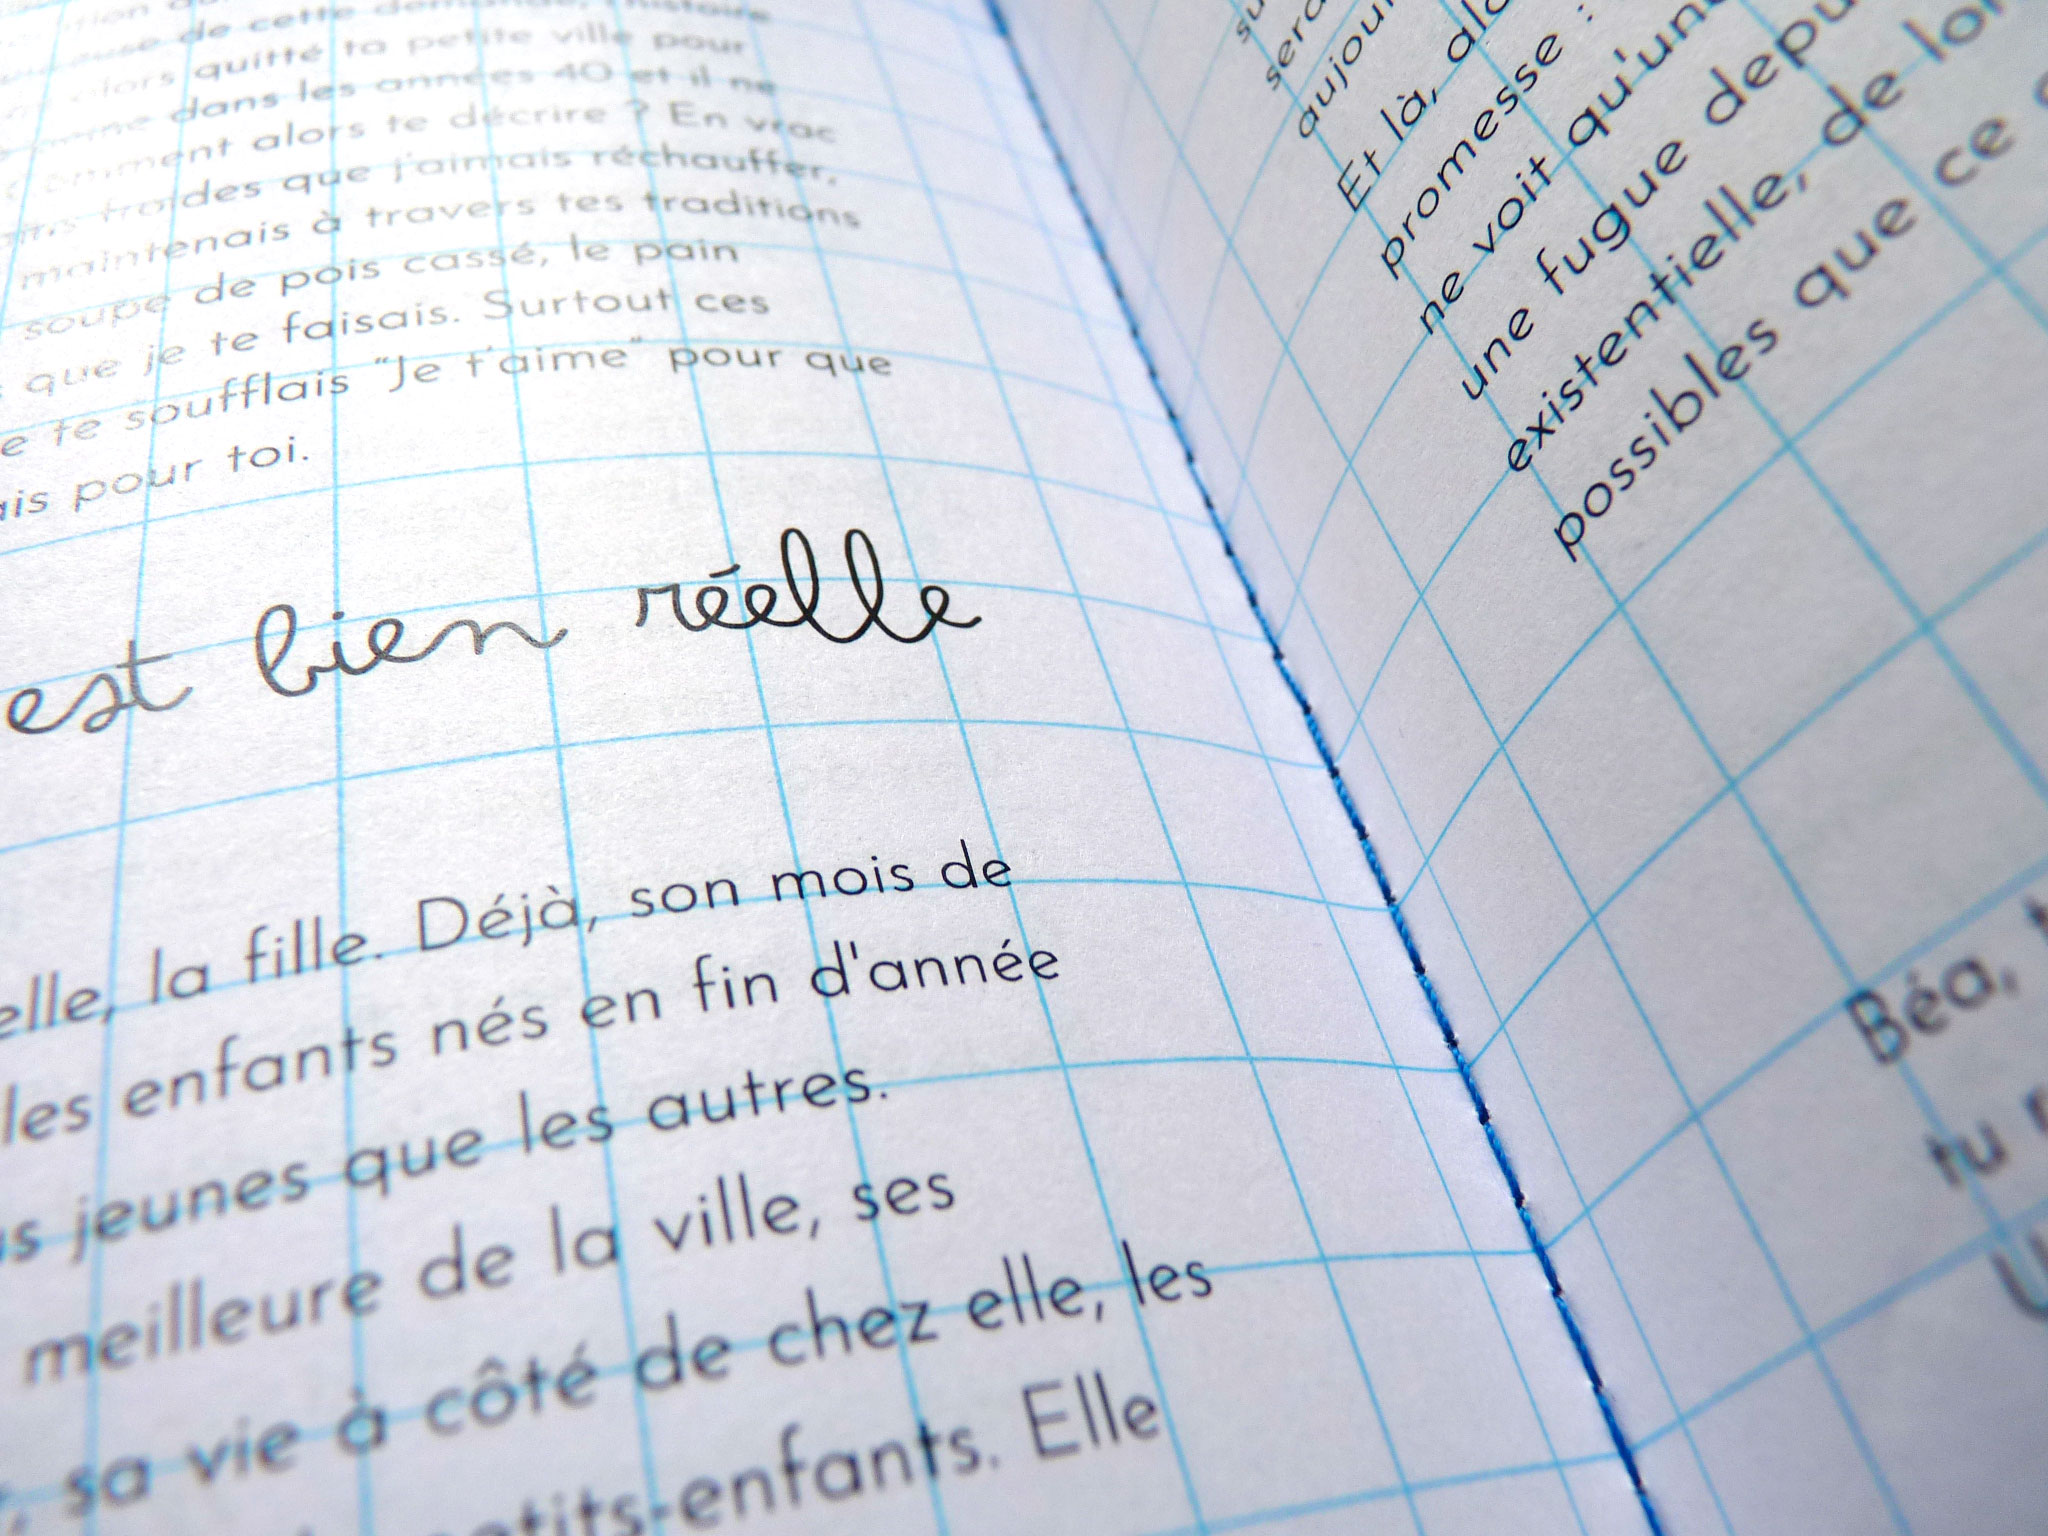 de cette
quitté ta petite ville pour
dans les années 40 et il ne
alors te décrire ? En vrac
froides que j'aimais réchauffer,
maintenais à travers tes traditions
soupe de pois cassé, le pain
que je te faisais. Surtout ces
te soufflais "Je t'aime" pour que
pour toi.
est bien réelle
elle, la fille. Déjà, son mois de
les enfants nés en fin d'année
jeunes que les autres.
meilleure de la ville, ses
sa vie à côté de chez elle, les
petits-enfants. Elle
Et là,
promesse :
ne voit qu'une
une fugue
existentielle, de
possibles que ce
Béa,
tu